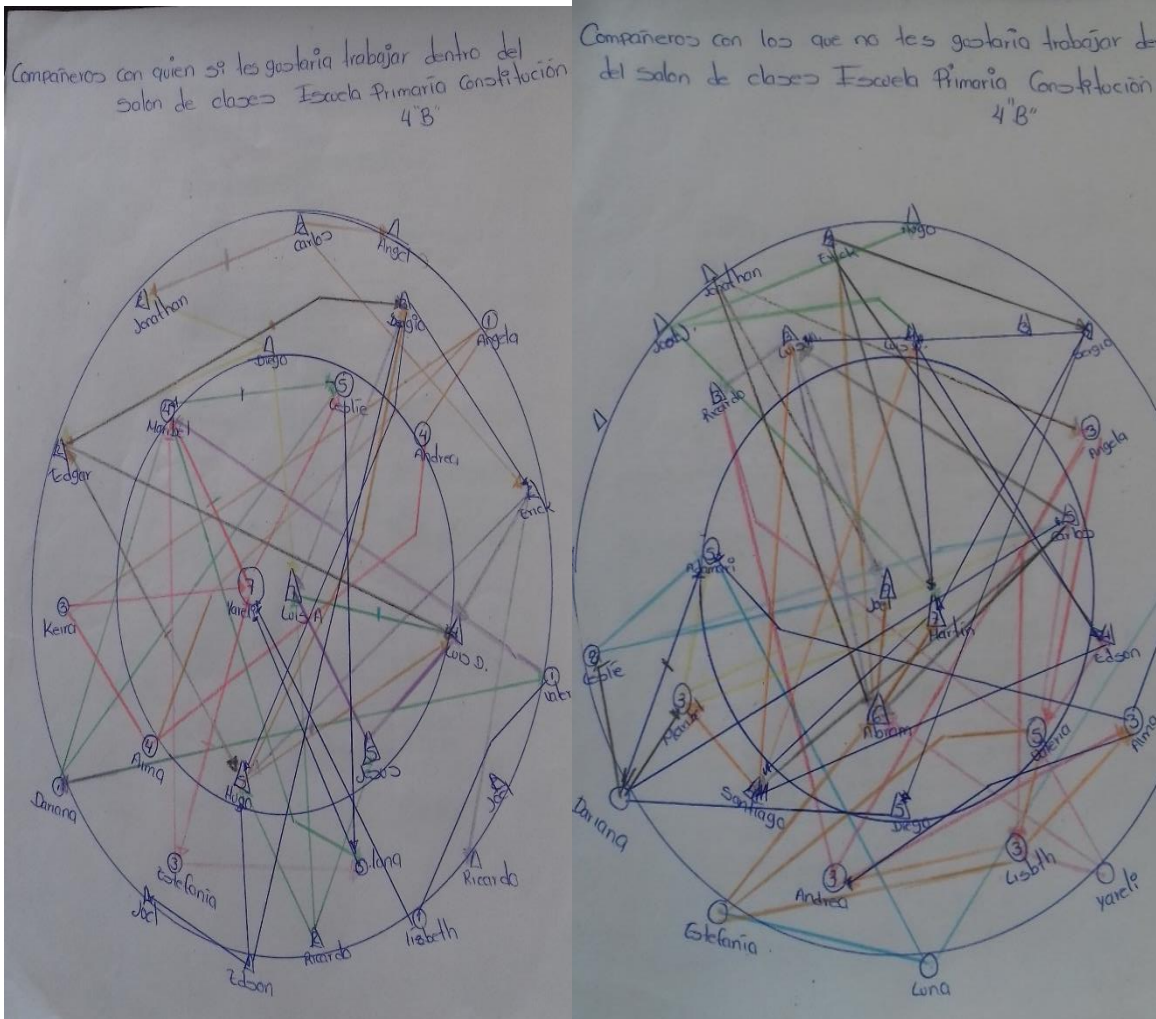 Compañeros con quien si les gustaria trabajar dentro del
salon de clases Escuela Primaria Constitución
4"B"
Carlos
Angel
Jonathan
Sergio
1
Angela
Diego
5
Leslie
4
Maribel
4
Andrea
Edgar
Erick
7
Yareli
Luis A
3
Keira
Luis D.
1
4
Alma
5
Hugo
5
Jesus
Dariana
3
Estefania
Luna
Ricardo
Joel
Lisbeth
2
Ricardo
Edson
Compañeros con los que no les gustaria trabajar de
del salon de clases Escuela Primaria Constitución
4"B"
Hugo
Erick
Jonathan
Sergio
Ricardo
3
Angela
5
Carlos
5
Joel
Martin
Edson
Leslie
3
Maribel
Abiram
5
Valeria
3
Alma
Santiago
Diego
Dariana
3
Andrea
3
Lisbth
Yareli
Estefania
Luna